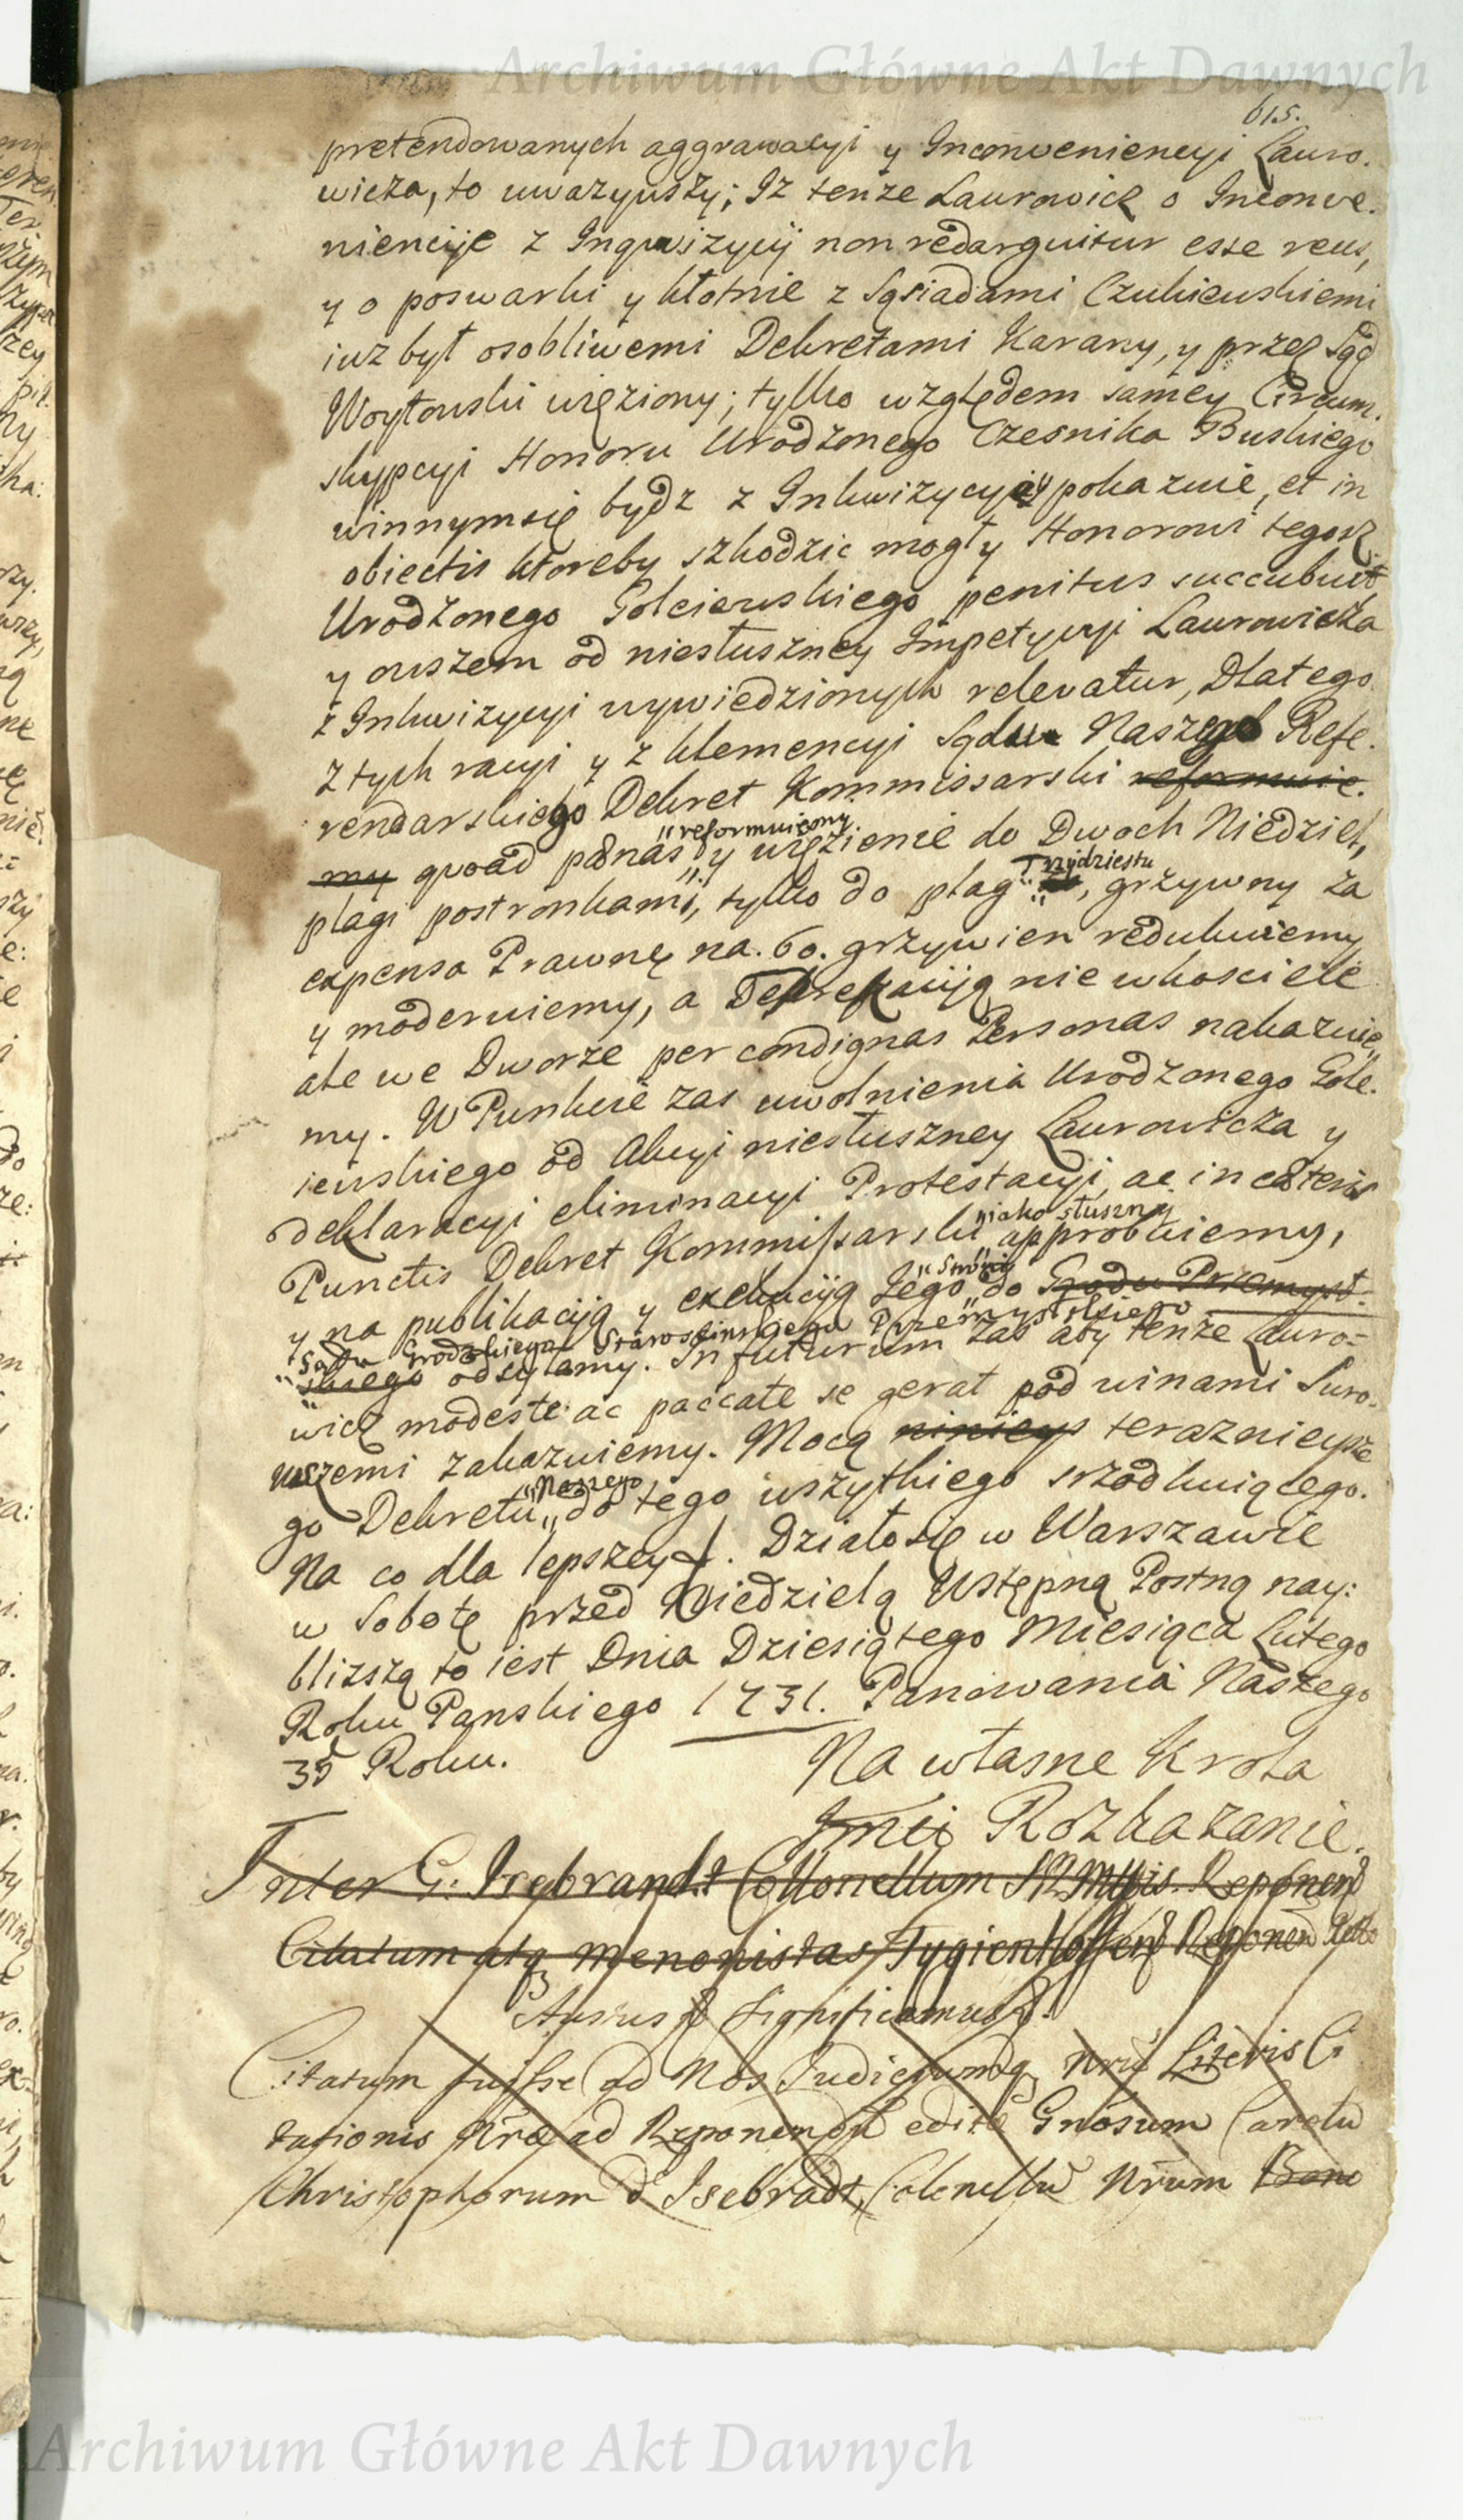 Archiwum Główne Akt Dawnych
615.
pretendowanych aggrawacyi y Inconveniencyi Lauro.
wicza, to uwazywszy; Iz tenze Laurowicz o Inconve.
niencyie z Inqwizycyi non redarguitur esse reus,
y o poswarki y kłotnie z Sąsiadami Czukiewskiemi
iuz był osobliwemi Dekretami Karany, y przez Sąd
Woytowski więziony; tylko względem samey Circum.
skrypcyi Honoru Urodzonego Czesnika Buskiego
winnym się bydz z Inkwizycyi pokazuie, et in
obiectis ktoreby szkodzic mogły Honorowi tegoz
Urodzonego Goleiewskiego penitus succubuit
y owszem od niesłuszney Impetycyi Laurowicza
z Inkwizycyi wywiedzionych relevatur, Dlatego
z tych racyi y z klemencyi Sądu Naszego Refe.
rendarskiego Dekret Kommissarski reformuie.
my quoad pænas „reformuiemy„ y więzienie do Dwoch Niedziel,
plagi postronkami, tylko do plag „Trzydziestu„, grzywny za
expensa Prawne na. 60. grzywien redukuiemy
y moderuiemy, a Deprekacyją nie w kosciele
ale we Dworze per condignas Personas nakazuie
my. W Punkcie zas uwolnienia Urodzonego Gole.
iewskiego od Akcyi niesłuszney Laurowicza y
deklaracyi eliminacyi Protestacyi, ac in cæteris
Punctis Dekret Kommissarski „iako słuszny„ approbuiemy,
y na publikacyją y exekucyją Jego „Strony„ do Grodu Przemysl.
„Sądu Grodzkiego Staroscinskiego Przemyslskiego
skiego odsyłamy. In futurum zas aby tenze Lauro-
wicz modeste ac paccate se gerat pod winami Suro.
wszemi zakazuiemy. Mocą ninieys teraznieysze
go Dekretu „Naszego„ do tego wszytkiego srzodkuiącego.
Na co dla lepszey f. Działo się w Warszawie
w Sobotę przed Niedzielą Wstępną Postną nay:
blizszą to iest Dnia Dziesiątego Miesiąca Lutego
Roku Panskiego 1731. Panowania Naszego
35 Roku.
Na własne Krola
Jmci Rozkazanie.
Inter G. Isebrandt Collonellum Reponend
Citatum atq Menonistas Tygienhoffens Reponend
Augustus Significamus
Citatum fuisse ad Nos Judiciumq Nrũ Literis Ci
tationis Nræ ad Reponendũ editæ Gnosum Carolũ
Christophorum d Isebradt, Colonellũ Nrum Bono
Archiwum Główne Akt Dawnych